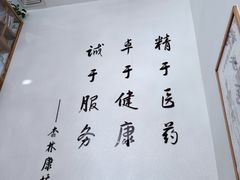 精于医药
卓于健康
诚于服务
——杏林康